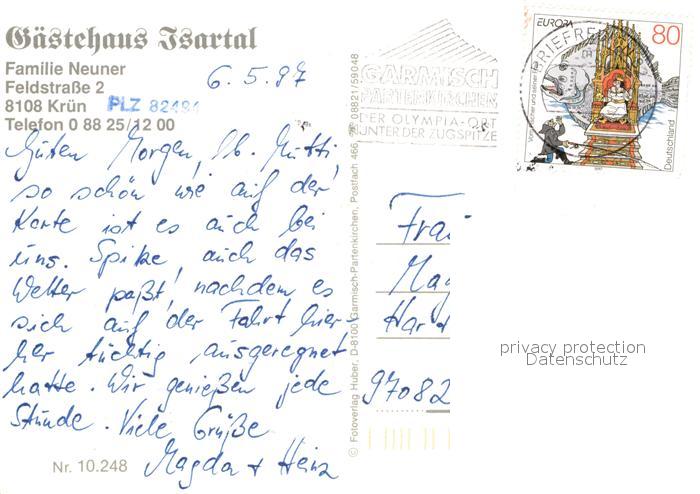 Gästehaus Isartal
Familie Neuner
Feldstraße 2
8108 Krün PLZ 82494
Telefon 0 88 25/12 00
6.5.97
Guten Morgen, lb. Mutti,
so schön wie auf der
Karte ist es auch bei
uns. Spitze, auch das
Wetter paßt, nachdem es
sich auf der Fahrt hier-
her tüchtig ausgeregnet
hatte. Wir genießen jede
Stunde. Viele Grüße
Magda + Heinz
Nr. 10.248
© Fotoverlag Huber, D-8100 Garmisch-Partenkirchen, Postfach 466, 08821/59048
GARMISCH
PARTENKIRCHEN
DER OLYMPIA-ORT
UNTER DER ZUGSPITZE
BRIEFZE
EUROPA 80
Deutschland
Frau
Mag
Har
97082
privacy protection
Datenschutz